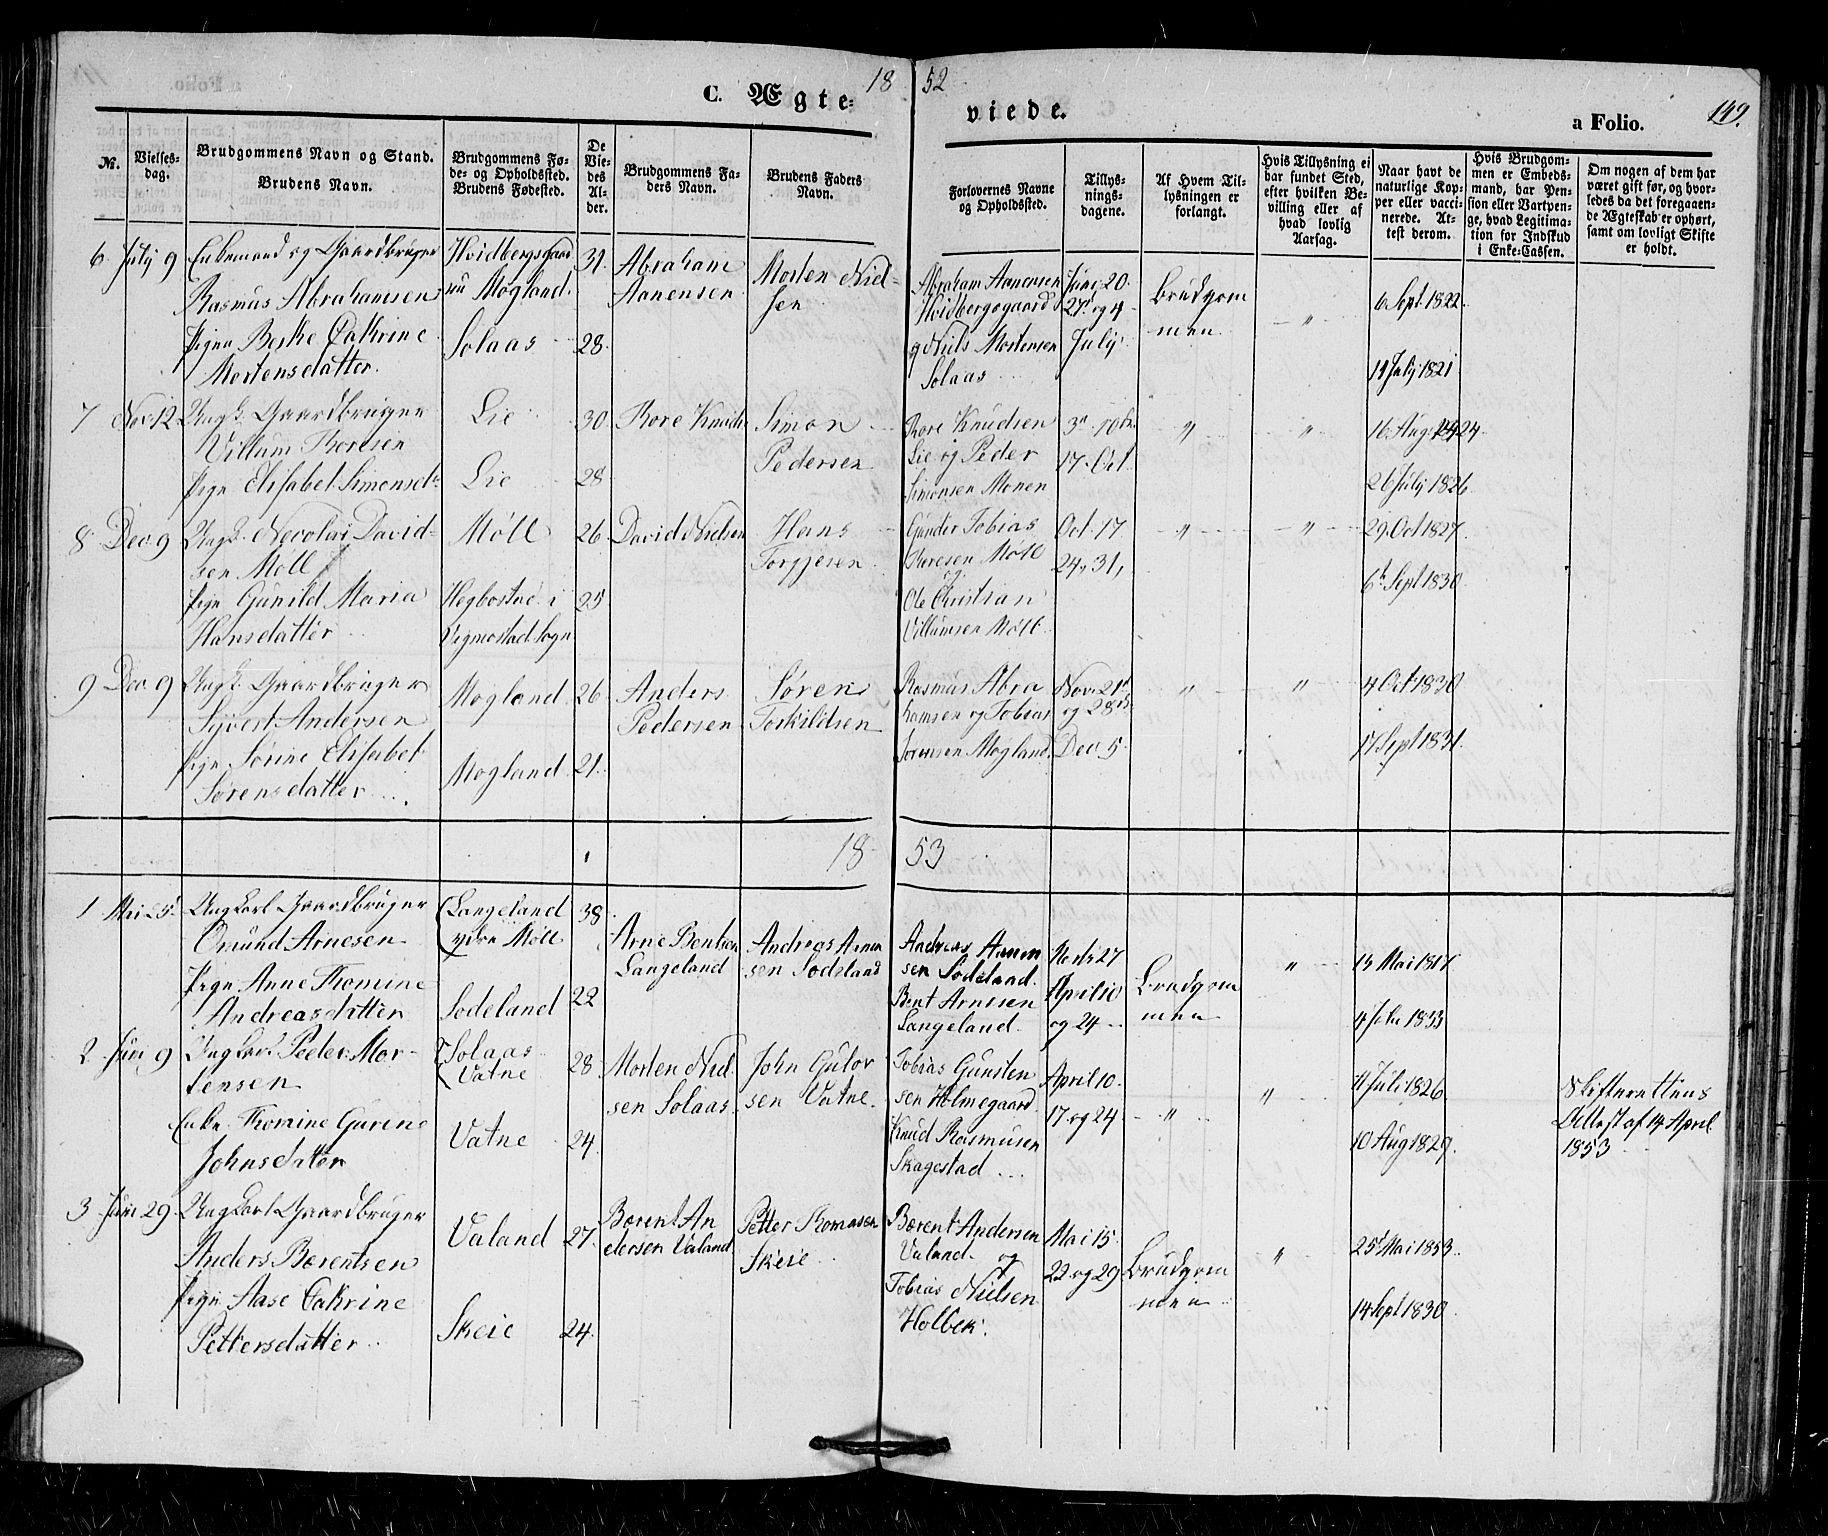 18 52
C. Ægte-
viede.
a Folio.
149.
Nr.
Vielses-
dag.
Brudgommens Navn og Stand.
Brudens Navn.
Brudgommens Fø-
de- og Opholdssted.
Brudens Fødested.
De
Vie-
des
Al-
der.
Brudgommens Fa-
ders Navn.
Brudens Faders
Navn.
Forlovernes Navne
og Opholdssted.
Tillys-
nings-
dagene.
Af Hvem Til-
lysningen er
forlangt.
Hvis Tillysning ei
har fundet Sted,
efter hvilken Be-
villing eller af
hvad lovlig
Aarsag.
Naar havt de
naturlige Kop-
per eller vacci-
nerede. At-
test derom.
Hvis Brudgom-
men er Embeds-
mand, har Pen-
sion eller Vartpen-
ge, hvad Legitima-
tion for Indskud
i Enke-Cassen.
Om nogen af dem har
været gift før, og hvor-
ledes da det foregaaen-
de Ægteskab er ophørt,
samt om lovligt Skifte
er holdt.
6 July 9 Enkemand og Gaardbruger
Rasmus Abrahamsen
Pigen Berthe Cathrine
Mortensdatter.
Hvidbergsgaard
Møgland
Solaas
31
28
Abraham
Aanensen
Morten Niel-
sen
Abraham Aanensen
Hvidbergsgaard
og Niels Mortensen
Solaas
Juni 20
27 og 4
July
Brudgom
men
"
6 Sept 1822
11 July 1821
7 Nov 12 Ungk. Gaardbruger
Villum Thoresen
Pign Elisabet Simonsdt
Lie
Lie
30
28
Thore Knuds
Simon
Pedersen
Thore Knudsen
Lie og Peder
Simonsen Monen
3 10
17 Oct
"
"
16 Aug 1824
26 July 1826
8 Dec 9 Ungk. Nicolai David-
sen Møll
Pign Gunild Maria
Hansdatter
Møll
Hegbostad i
Vigmostad Sogn
26
25
David Nielsen
Hans
Torgjesen
Gunder Tobias
Thoresen Møll
og
Ole Christian
Villumsen Møll
Oct 17
24, 31,
"
"
29 Oct 1827
6 Sept 1830
9 Dec 9 Ungk. Gaardbruger
Syvert Andersen
Pign Sørine Elisabet
Sørensdatter
Møgland
Møgland
26
21
Anders
Pedersen
Søren
Torkildsen
Rasmus Abra
hamsen og Tobias
Sørensen Møgland
Nov 21
og 28
Dec 5
"
"
4 Oct 1830
17 Sept 1831
18 53
1 Mai 25 Ungkarl Gaardbruger
Omund Arnesen
Pign Anne Thomine
Andreasdatter
Langeland
ydre Møll
Sodeland
38
22
Arne Bentsen
Langeland
Andreas Aanen
sen Sodeland
Andreas Aanen
sen Sodeland
Bent Arnesen
Langeland
Marts 27
April 10
og 24
Brudgom
men
"
13 Mai 1817
4 1833
2 Juni 9 Ungkarl Peder Mor-
tensen
Enke Thomine Gurine
Johnsdatter
Solaas
Vatne
Vatne
28
24
Morten Niel
sen Solaas
John Gutor
sen Vatne
Tobias Gunsten
sen Holmegaard
Knud Rasmusen
Skagestad
April 10
17 og 24
"
"
11 Juli 1826
10 Aug 1829
Skifterettens
Attest af 14 April
1853
3 Juni 29 Ungkarl Gaardbruger
Anders Bærentsen
Pign Aase Cathrine
Pettersdatter
Valand
Skeie
27
24
Bærent An
dersen Valand
Petter Thomasen
Skeie
Bærent Andersen
Valand og
Tobias Nielsen
Holbek
Mai 15
22 og 29
Brudgom
men
"
25 Mai 1853
14 Sept 1830